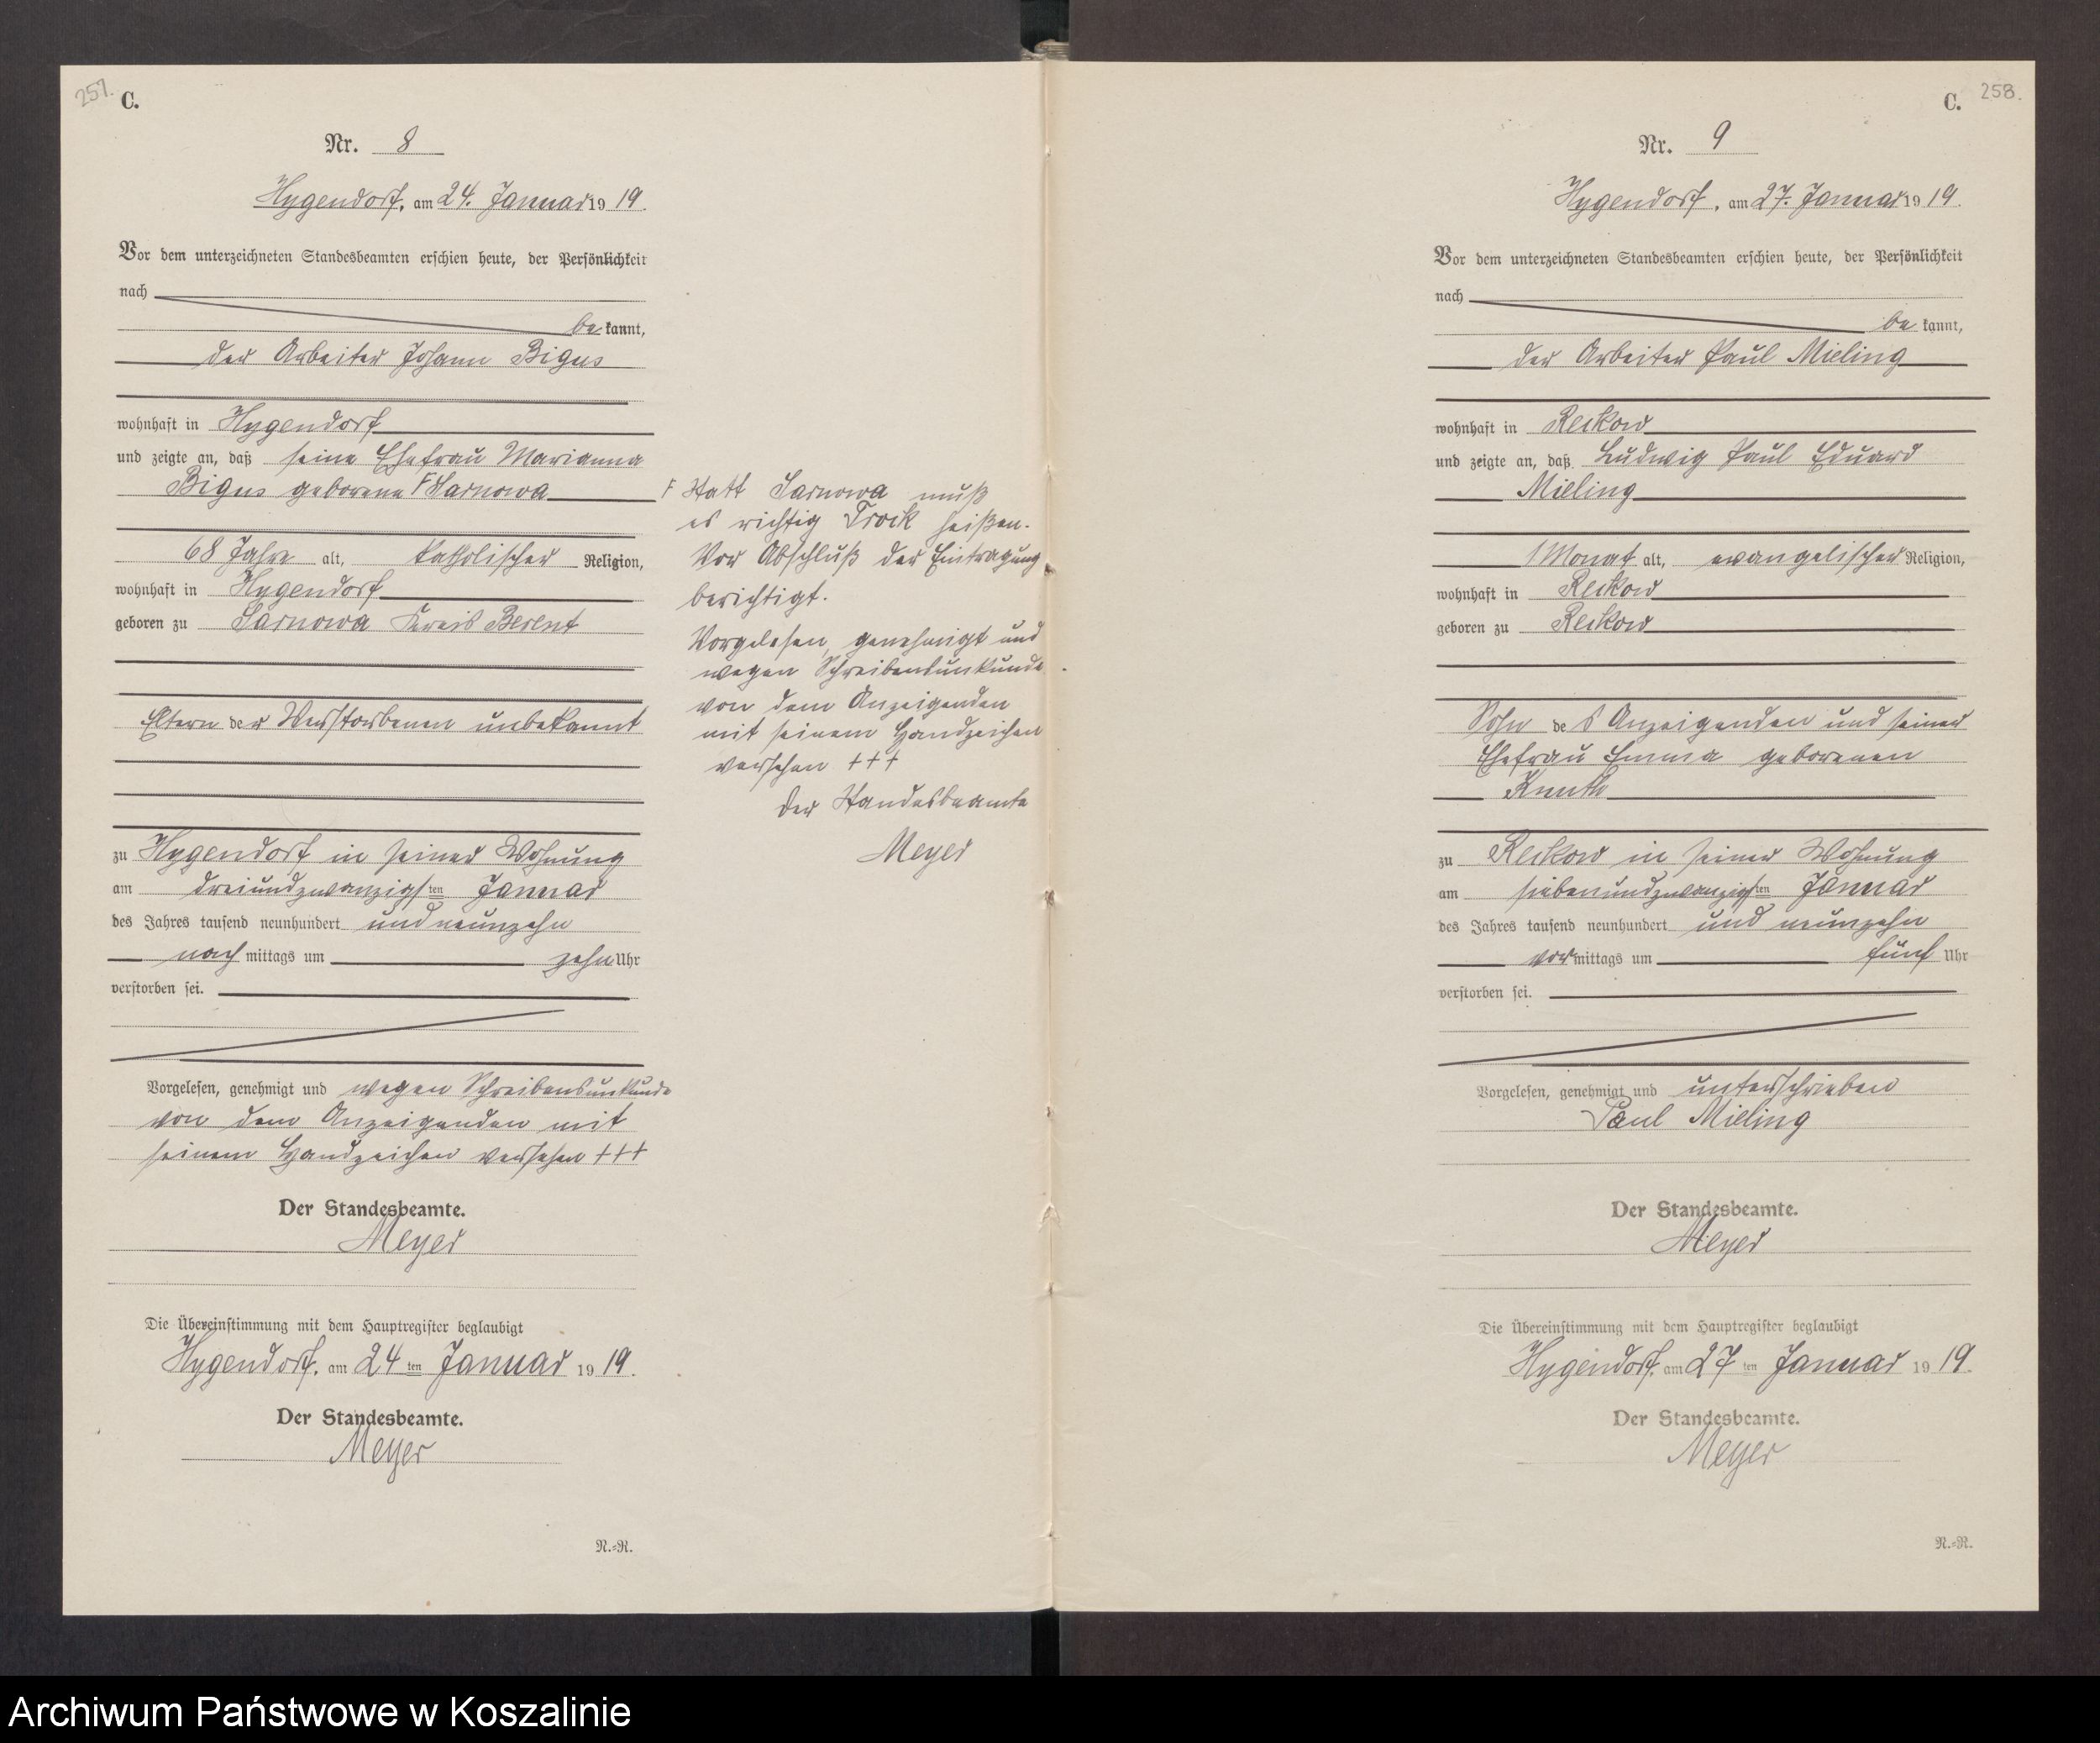 257.
C.
Nr. 8
Hygendorf, am 24. Januar 1919.
Vor dem unterzeichneten Standesbeamten erschien heute, der Persönlichkeit
nach
be kannt,
der Arbeiter Johann Bigus
wohnhaft in Hygendorf
und zeigte an, daß seine Ehefrau Marianna
Bigus geborene F Sarnowa
68 Jahre alt, katholischer Religion,
wohnhaft in Hygendorf
geboren zu Sarnowa Kreis Berent
Eltern der Verstorbenen unbekannt
zu Hygendorf in seiner Wohnung
am dreiundzwanzigsten Januar
des Jahres tausend neunhundert und neunzehn
nach mittags um zehn Uhr
verstorben sei.
Vorgelesen, genehmigt und wegen Schreibensunkunde
von dem Anzeigenden mit
seinem Handzeichen versehen +++
Der Standesbeamte.
Meyer
Die Übereinstimmung mit dem Hauptregister beglaubigt
Hygendorf, am 24ten Januar 1919.
Der Standesbeamte.
Meyer
N.=R.
F Statt Sarnowa muß
es richtig Trock heißen.
Vor Abschluß der Eintragung
berichtigt.
Vorgelesen, genehmigt und
wegen Schreibensunkunde
von dem Anzeigenden
mit seinem Handzeichen
versehen +++
Der Standesbeamte
Meyer
C. 258.
Nr. 9
Hygendorf, am 27. Januar 1919.
Vor dem unterzeichneten Standesbeamten erschien heute, der Persönlichkeit
nach
be kannt,
der Arbeiter Paul Mieling
wohnhaft in Reckow
und zeigte an, daß Ludwig Paul Eduard
Mieling
1 Monat alt, evangelischer Religion,
wohnhaft in Reckow
geboren zu Reckow
Sohn des Anzeigenden und seiner
Ehefrau Emma geborenen
Knuth
zu Reckow in seiner Wohnung
am siebenundzwanzigsten Januar
des Jahres tausend neunhundert und neunzehn
vor mittags um fünf Uhr
verstorben sei.
Vorgelesen, genehmigt und unterschrieben
Paul Mieling
Der Standesbeamte.
Meyer
Die Übereinstimmung mit dem Hauptregister beglaubigt
Hygendorf, am 27ten Januar 1919.
Der Standesbeamte.
Meyer
N.=R.
Archiwum Państwowe w Koszalinie